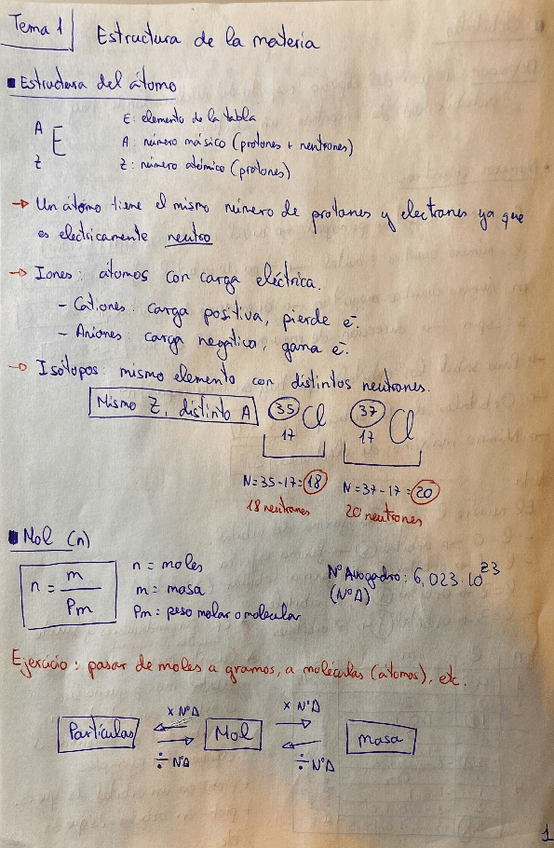 Tema 1 Estructura de la materia
Estructura del átomo
A E: elemento de la tabla
E A: número másico (protones + neutrones)
Z Z: número atómico (protones)
→ Un átomo tiene el mismo número de protones y electrones ya que
es eléctricamente neutro
→ Iones: átomos con carga eléctrica.
- Cationes: carga positiva, pierde e⁻.
- Aniones: carga negativa, gana e⁻.
→ Isótopos: mismo elemento con distintos neutrones.
Mismo Z, distinto A 35 Cl 37 Cl
17 17
N=35-17=18 N=37-17=20
18 neutrones 20 neutrones
Mol (n)
n = m / Pm
n = moles
m = masa
Pm = peso molar o molecular
Nº Avogadro: 6,023·10²³
(NºA)
Ejercicio: pasar de moles a gramos, a moléculas (átomos), etc.
x NºA x NºA
Partículas ← → Mol → ← masa
÷ NºA ÷ NºA
1